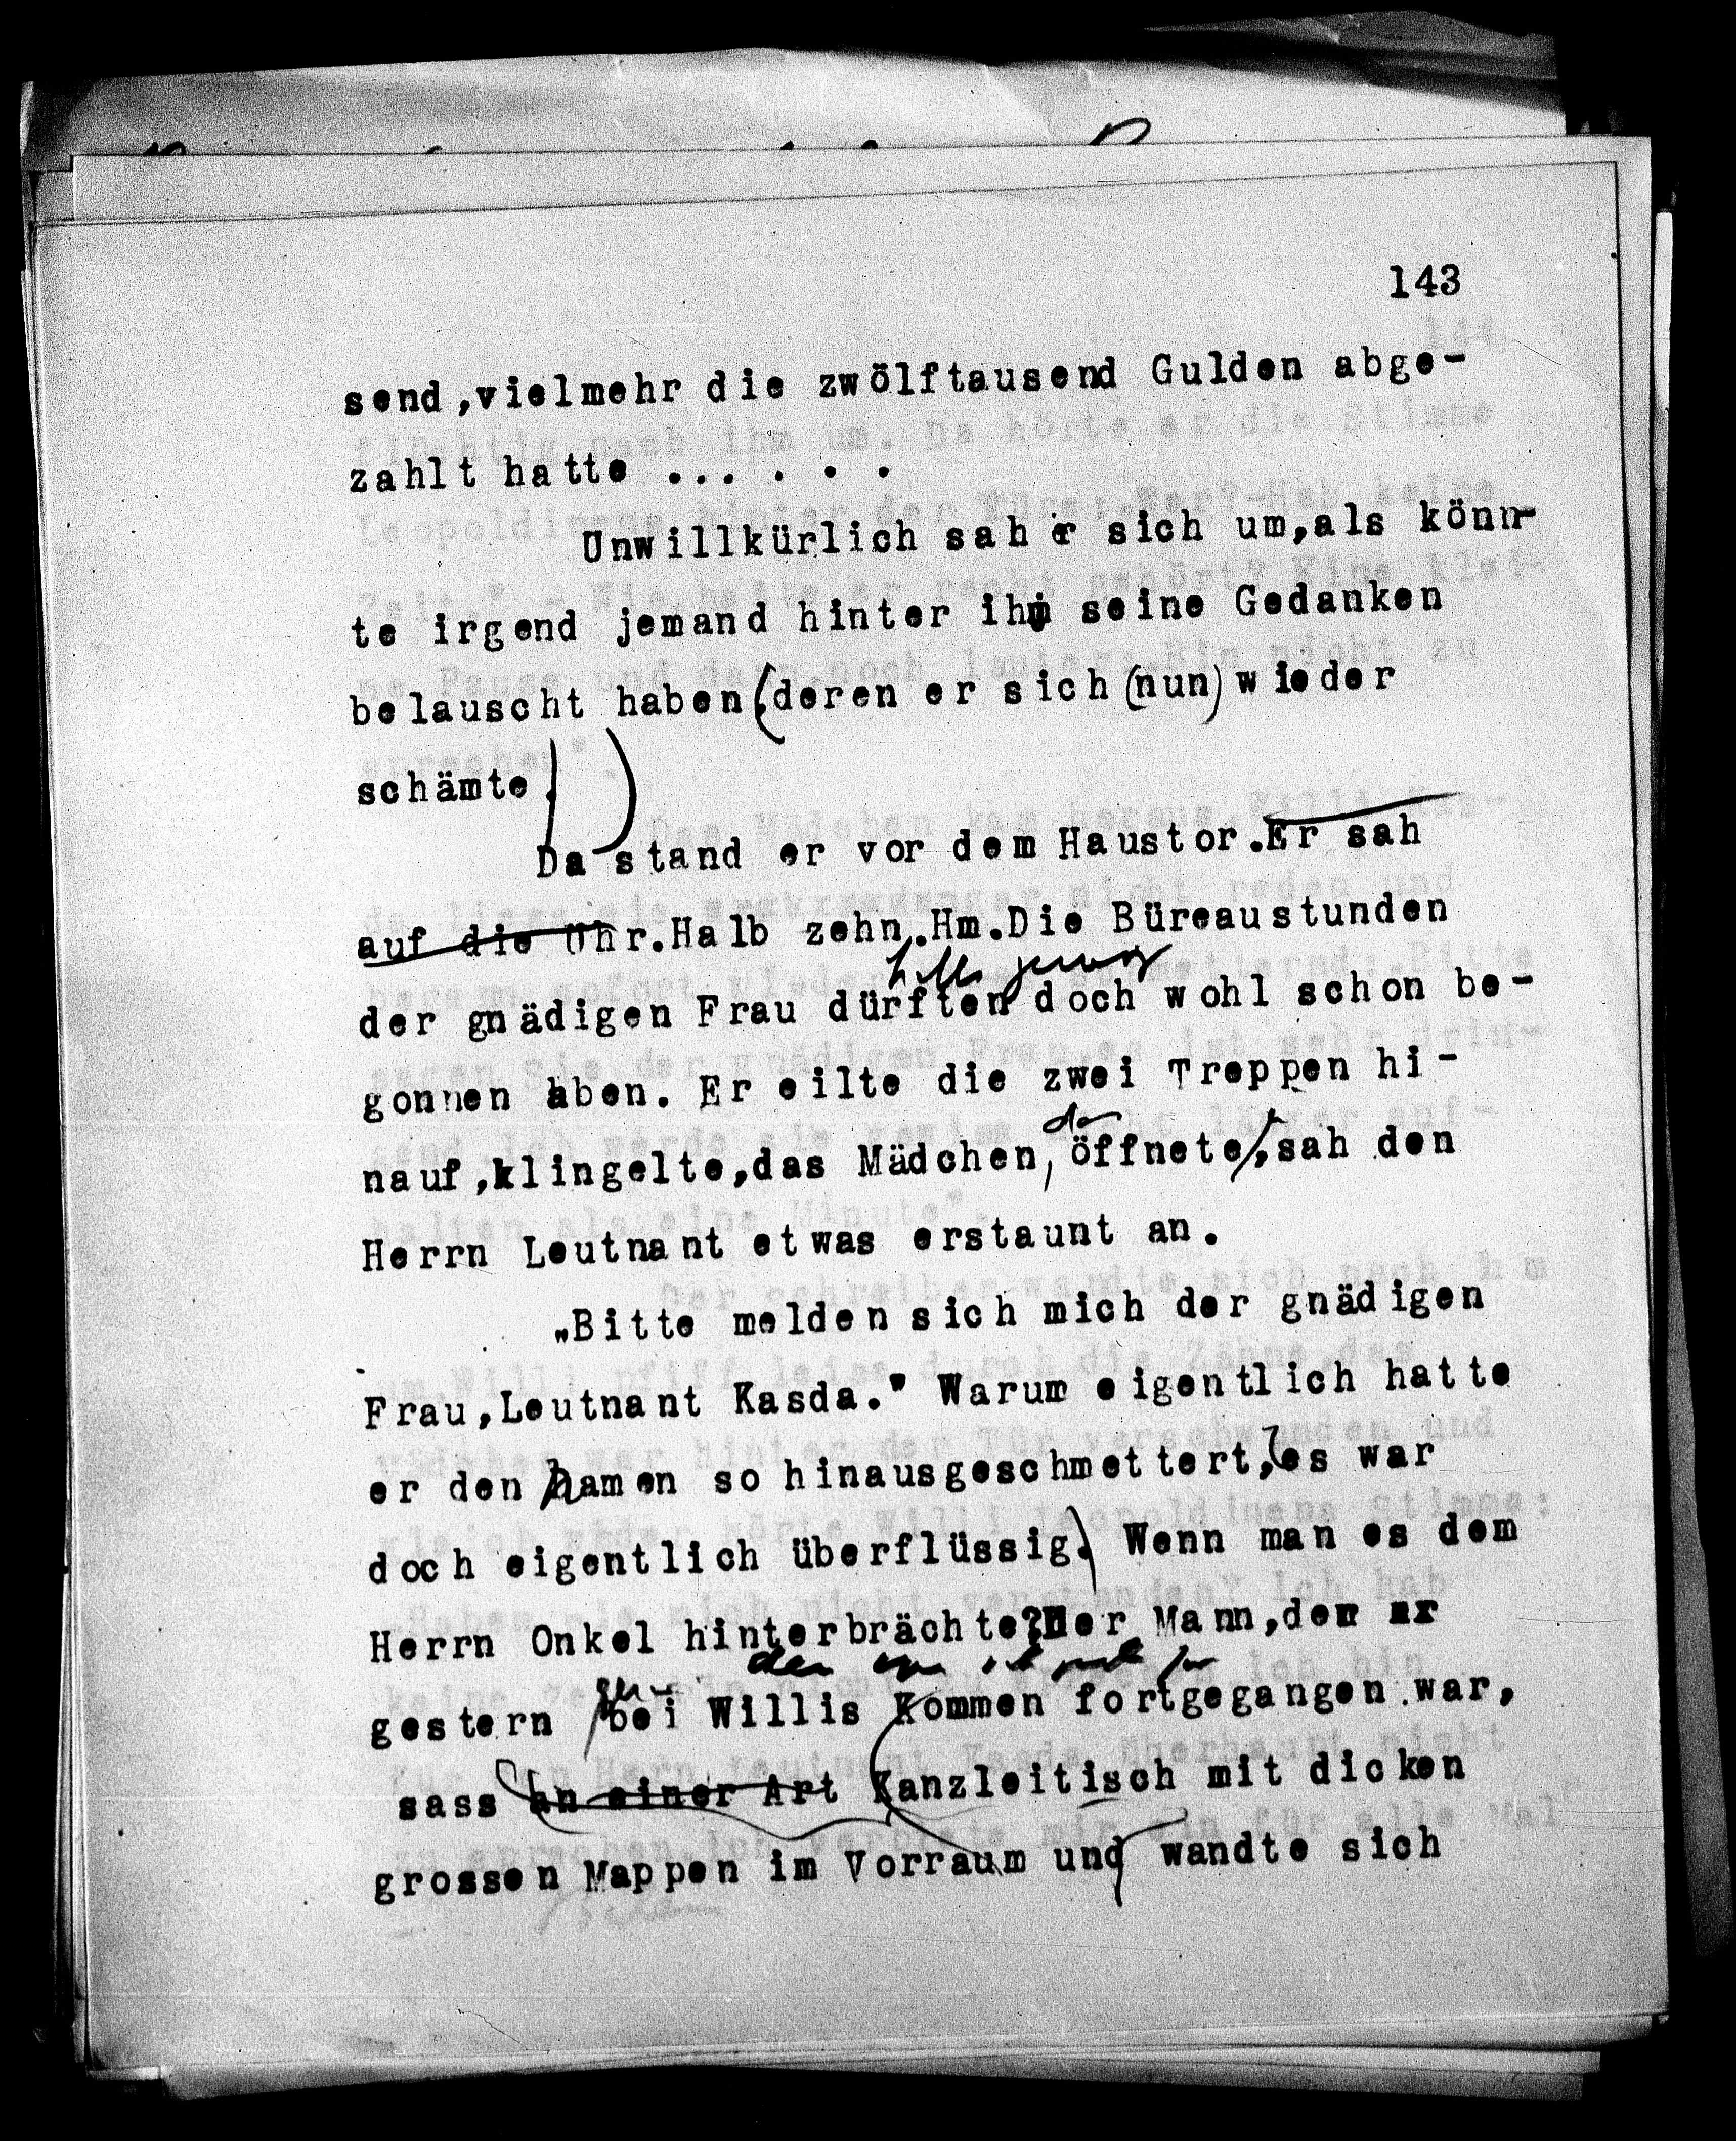 143
send,vielmehr die zwölftausend Gulden abge-
zahlt hatte ......
Unwillkürlich sah er sich um,als könn-
te irgend jemand hinter ihm seine Gedanken
belauscht haben(,deren er sich (nun) wieder
schämte.)
Da stand er vor dem Haustor.Er sah
auf die Uhr.Halb zehn.Hm.Die Büreaustunden
der gnädigen Frau dürften doch wohl schon be-
gonnen aben. Er eilte die zwei Treppen hi-
da
nauf,klingelte,das Mädchen, öffnete,sah den
Herrn Leutnant etwas erstaunt an.
„Bitte melden sich mich der gnädigen
Frau,Leutnant Kasda." Warum eigentlich hatte
er den Namen so hinausgeschmettert,es war
doch eigentlich überflüssig. Wenn man es dem
Herrn Onkel hinterbrächte?Der Mann,der er
den
gestern bei Willis Kommen fortgegangen war,
sass an einer Art Kanzleitisch mit dicken
grossen Mappen im Vorraum und wandte sich